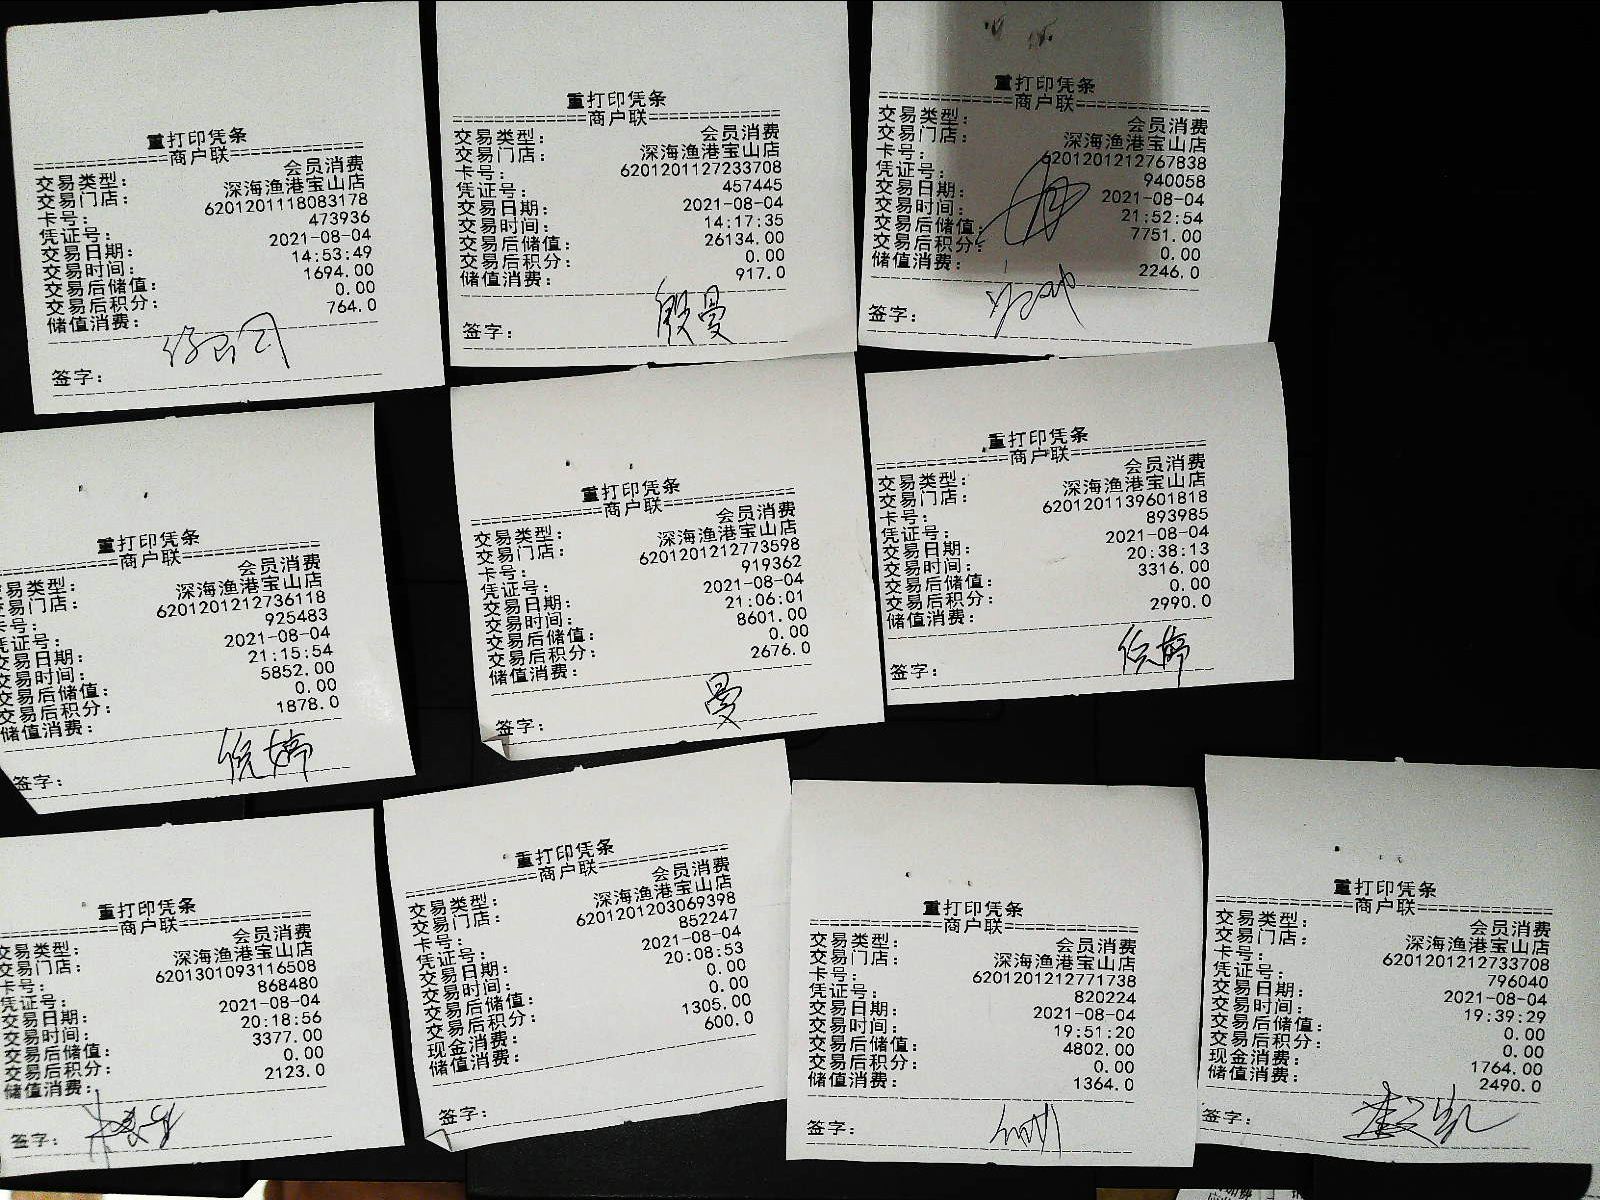 重打印凭条
商户联
交易类型： 会员消费
交易门店： 深海渔港宝山店
卡号： 6201201118083178
凭证号： 473936
交易日期： 2021-08-04
交易时间： 14:53:49
交易后储值： 1694.00
交易后积分： 0.00
储值消费： 764.0
签字：
重打印凭条
商户联
交易类型： 会员消费
交易门店： 深海渔港宝山店
卡号： 6201201127233708
凭证号： 457445
交易日期： 2021-08-04
交易时间： 14:17:35
交易后储值： 26134.00
交易后积分： 0.00
储值消费： 917.0
签字： 殷曼
重打印凭条
商户联
交易类型： 会员消费
交易门店： 深海渔港宝山店
卡号： 6201201212767838
凭证号： 940058
交易日期： 2021-08-04
交易时间： 21:52:54
交易后储值： 7751.00
交易后积分： 0.00
储值消费： 2246.0
签字：
重打印凭条
商户联
易类型： 会员消费
易门店： 深海渔港宝山店
卡号： 6201201212736118
凭证号： 925483
交易日期： 2021-08-04
交易时间： 21:15:54
交易后储值： 5852.00
交易后积分： 0.00
储值消费： 1878.0
签字： 倪婷
重打印凭条
商户联
交易类型： 会员消费
交易门店： 深海渔港宝山店
卡号： 6201201212773598
凭证号： 919362
交易日期： 2021-08-04
交易时间： 21:06:01
交易后储值： 8601.00
交易后积分： 0.00
储值消费： 2676.0
签字： 曼
重打印凭条
商户联
交易类型： 会员消费
交易门店： 深海渔港宝山店
卡号： 6201201139601818
凭证号： 893985
交易日期： 2021-08-04
交易时间： 20:38:13
交易后储值： 3316.00
交易后积分： 0.00
储值消费： 2990.0
签字： 倪婷
重打印凭条
商户联
交易类型： 会员消费
交易门店： 深海渔港宝山店
卡号： 6201301093116508
凭证号： 868480
交易日期： 2021-08-04
交易时间： 20:18:56
交易后储值： 3377.00
交易后积分： 0.00
储值消费： 2123.0
签字：
重打印凭条
商户联
交易类型： 会员消费
交易门店： 深海渔港宝山店
卡号： 6201201203069398
凭证号： 852247
交易日期： 2021-08-04
交易时间： 20:08:53
交易后储值： 0.00
交易后积分： 0.00
现金消费： 1305.00
储值消费： 600.0
签字：
重打印凭条
商户联
交易类型： 会员消费
交易门店： 深海渔港宝山店
卡号： 6201201212771738
凭证号： 820224
交易日期： 2021-08-04
交易时间： 19:51:20
交易后储值： 4802.00
交易后积分： 0.00
储值消费： 1364.0
签字：
重打印凭条
商户联
交易类型： 会员消费
交易门店： 深海渔港宝山店
卡号： 6201201212733708
凭证号： 796040
交易日期： 2021-08-04
交易时间： 19:39:29
交易后储值： 0.00
交易后积分： 0.00
现金消费： 1764.00
储值消费： 2490.0
签字：